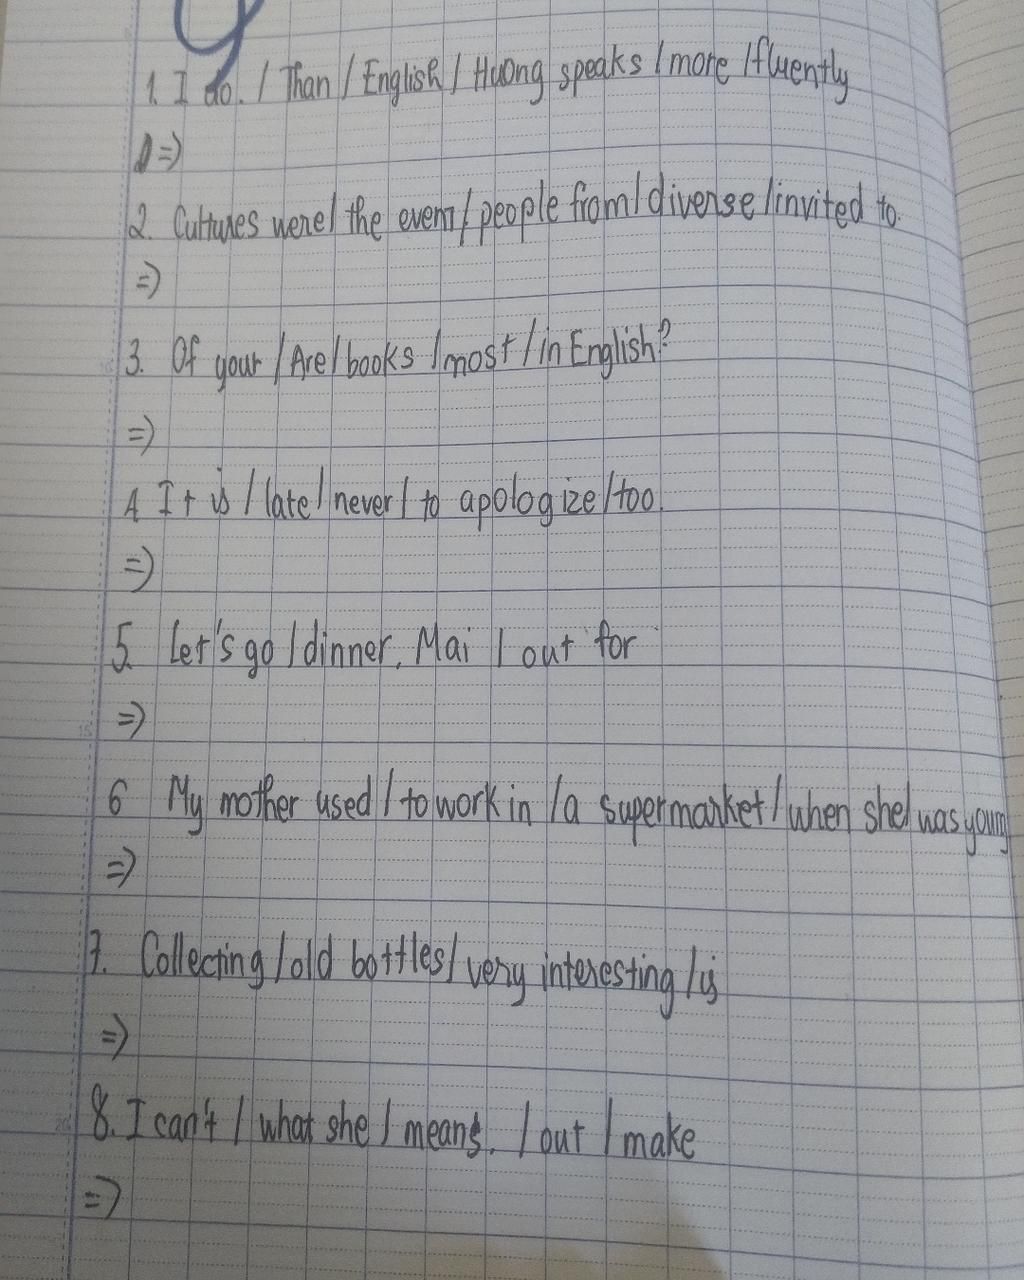 1. I do. / Than / English / Huong speaks / more / fluently
=>
2. Cultures were / the event / people from / diverse / invited to.
=>
3. Of your / Are / books / most / in English?
=>
4 It is / late / never / to apologize / too.
=>
5. Let's go / dinner, Mai / out for
=>
6 My mother used / to work in / a supermarket / when she / was young
=>
7. Collecting / old bottles / very interesting / is
=>
8. I can't / what she / means. / out / make
=>